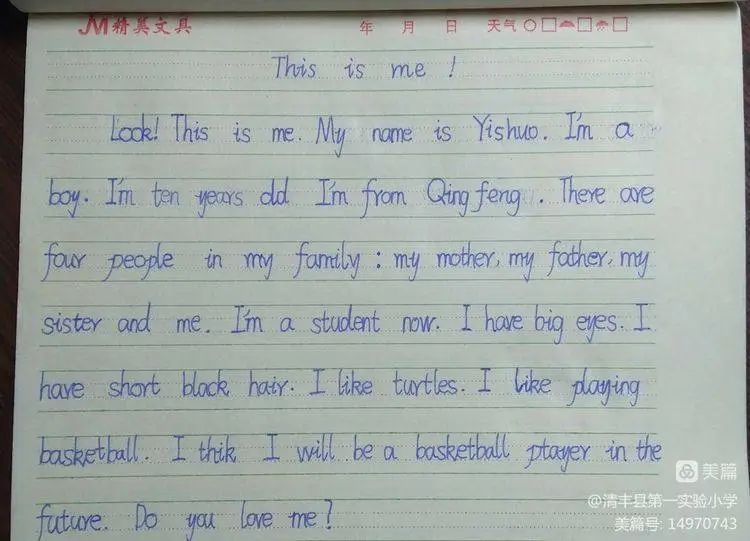 M精英文具 年 月 日 天气
This is me !
Look! This is me. My name is Yishuo. I'm a
boy. I'm ten years old I'm from Qing feng . There are
four people in my family : my mother, my father, my
sister and me. I'm a student now. I have big eyes. I
have short black hair. I like turtles. I like playing
basketball. I thik I will be a basketball ptayer in the
future. Do you love me?
美篇
@清丰县第一实验小学
美篇号: 14970743